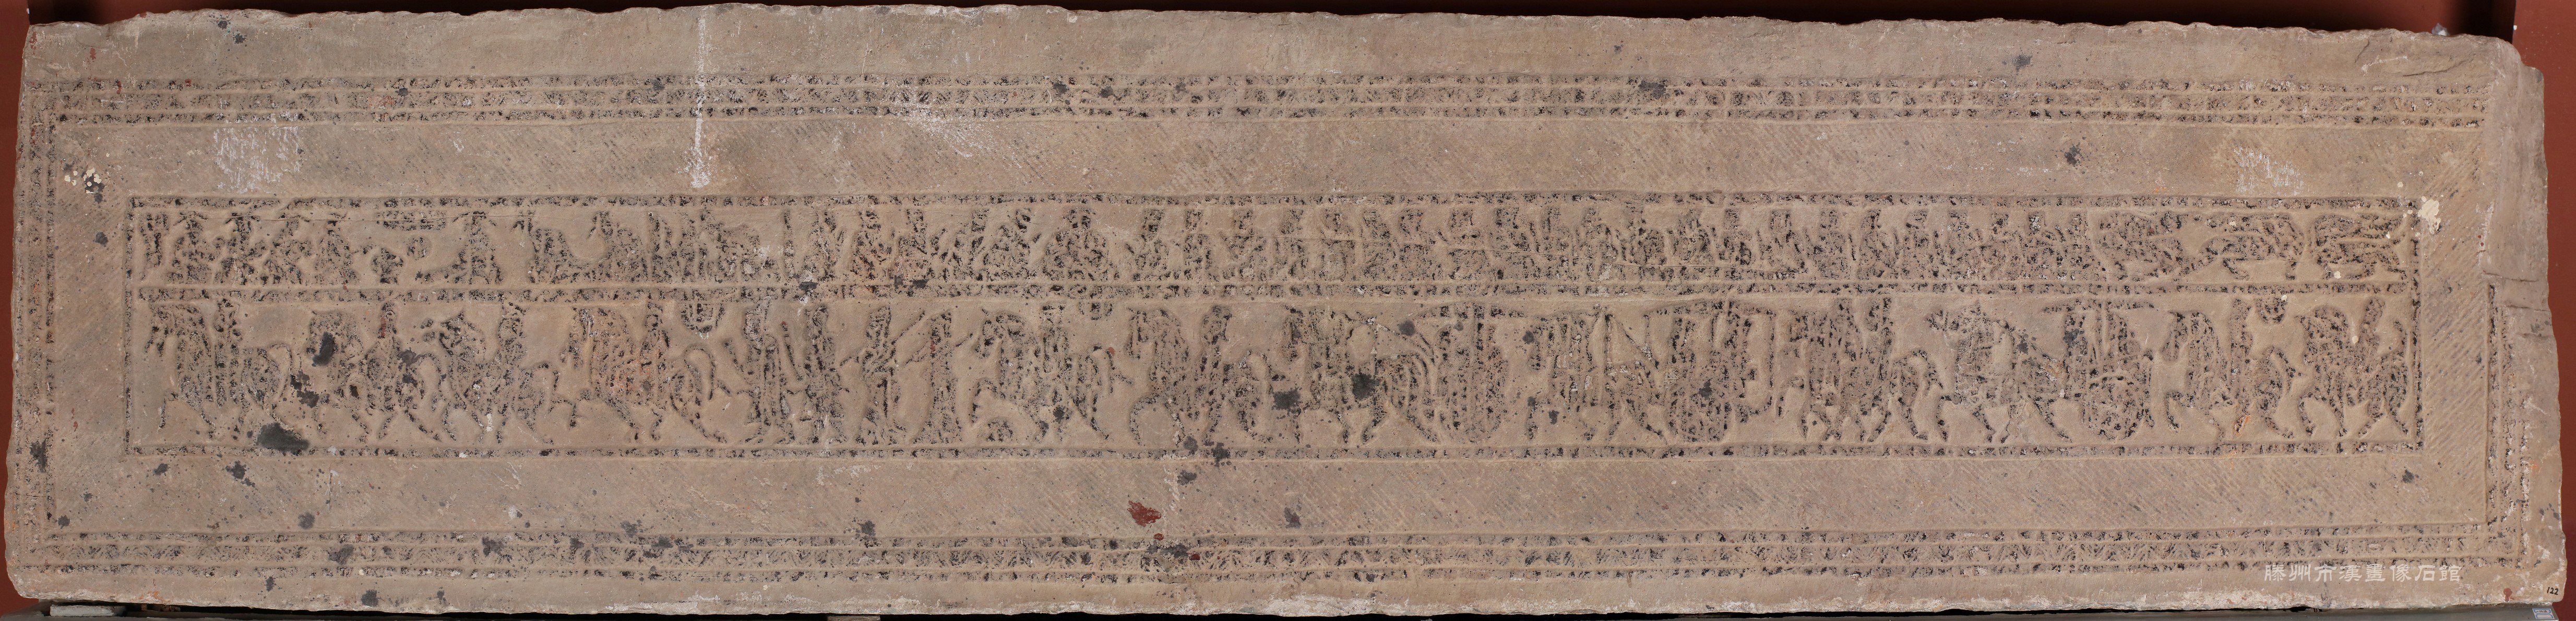 滕州市漢畫像石館
122